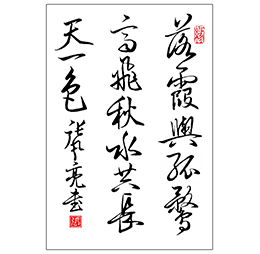 落霞與孤鶩
高飛秋水共長
天一色 亮書